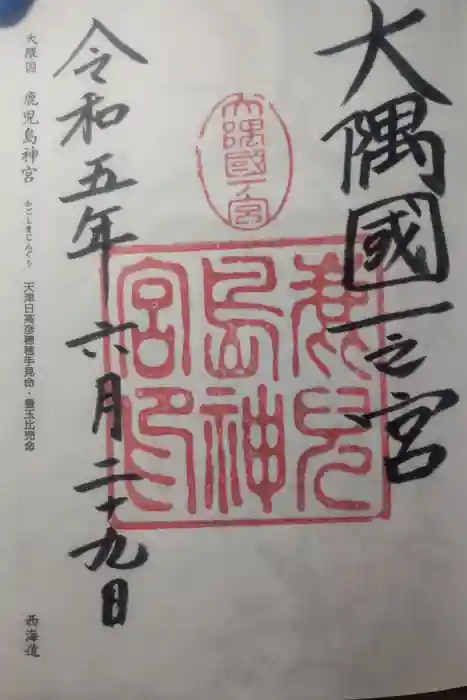 大隅國一之宮
大隅國一ノ宮
鹿児
島神
宮印
令和五年六月二十九日
大隅国 鹿児島神宮 かごしまじんぐう 天津日高彦穂穂手見命・豊玉比売命 西海道